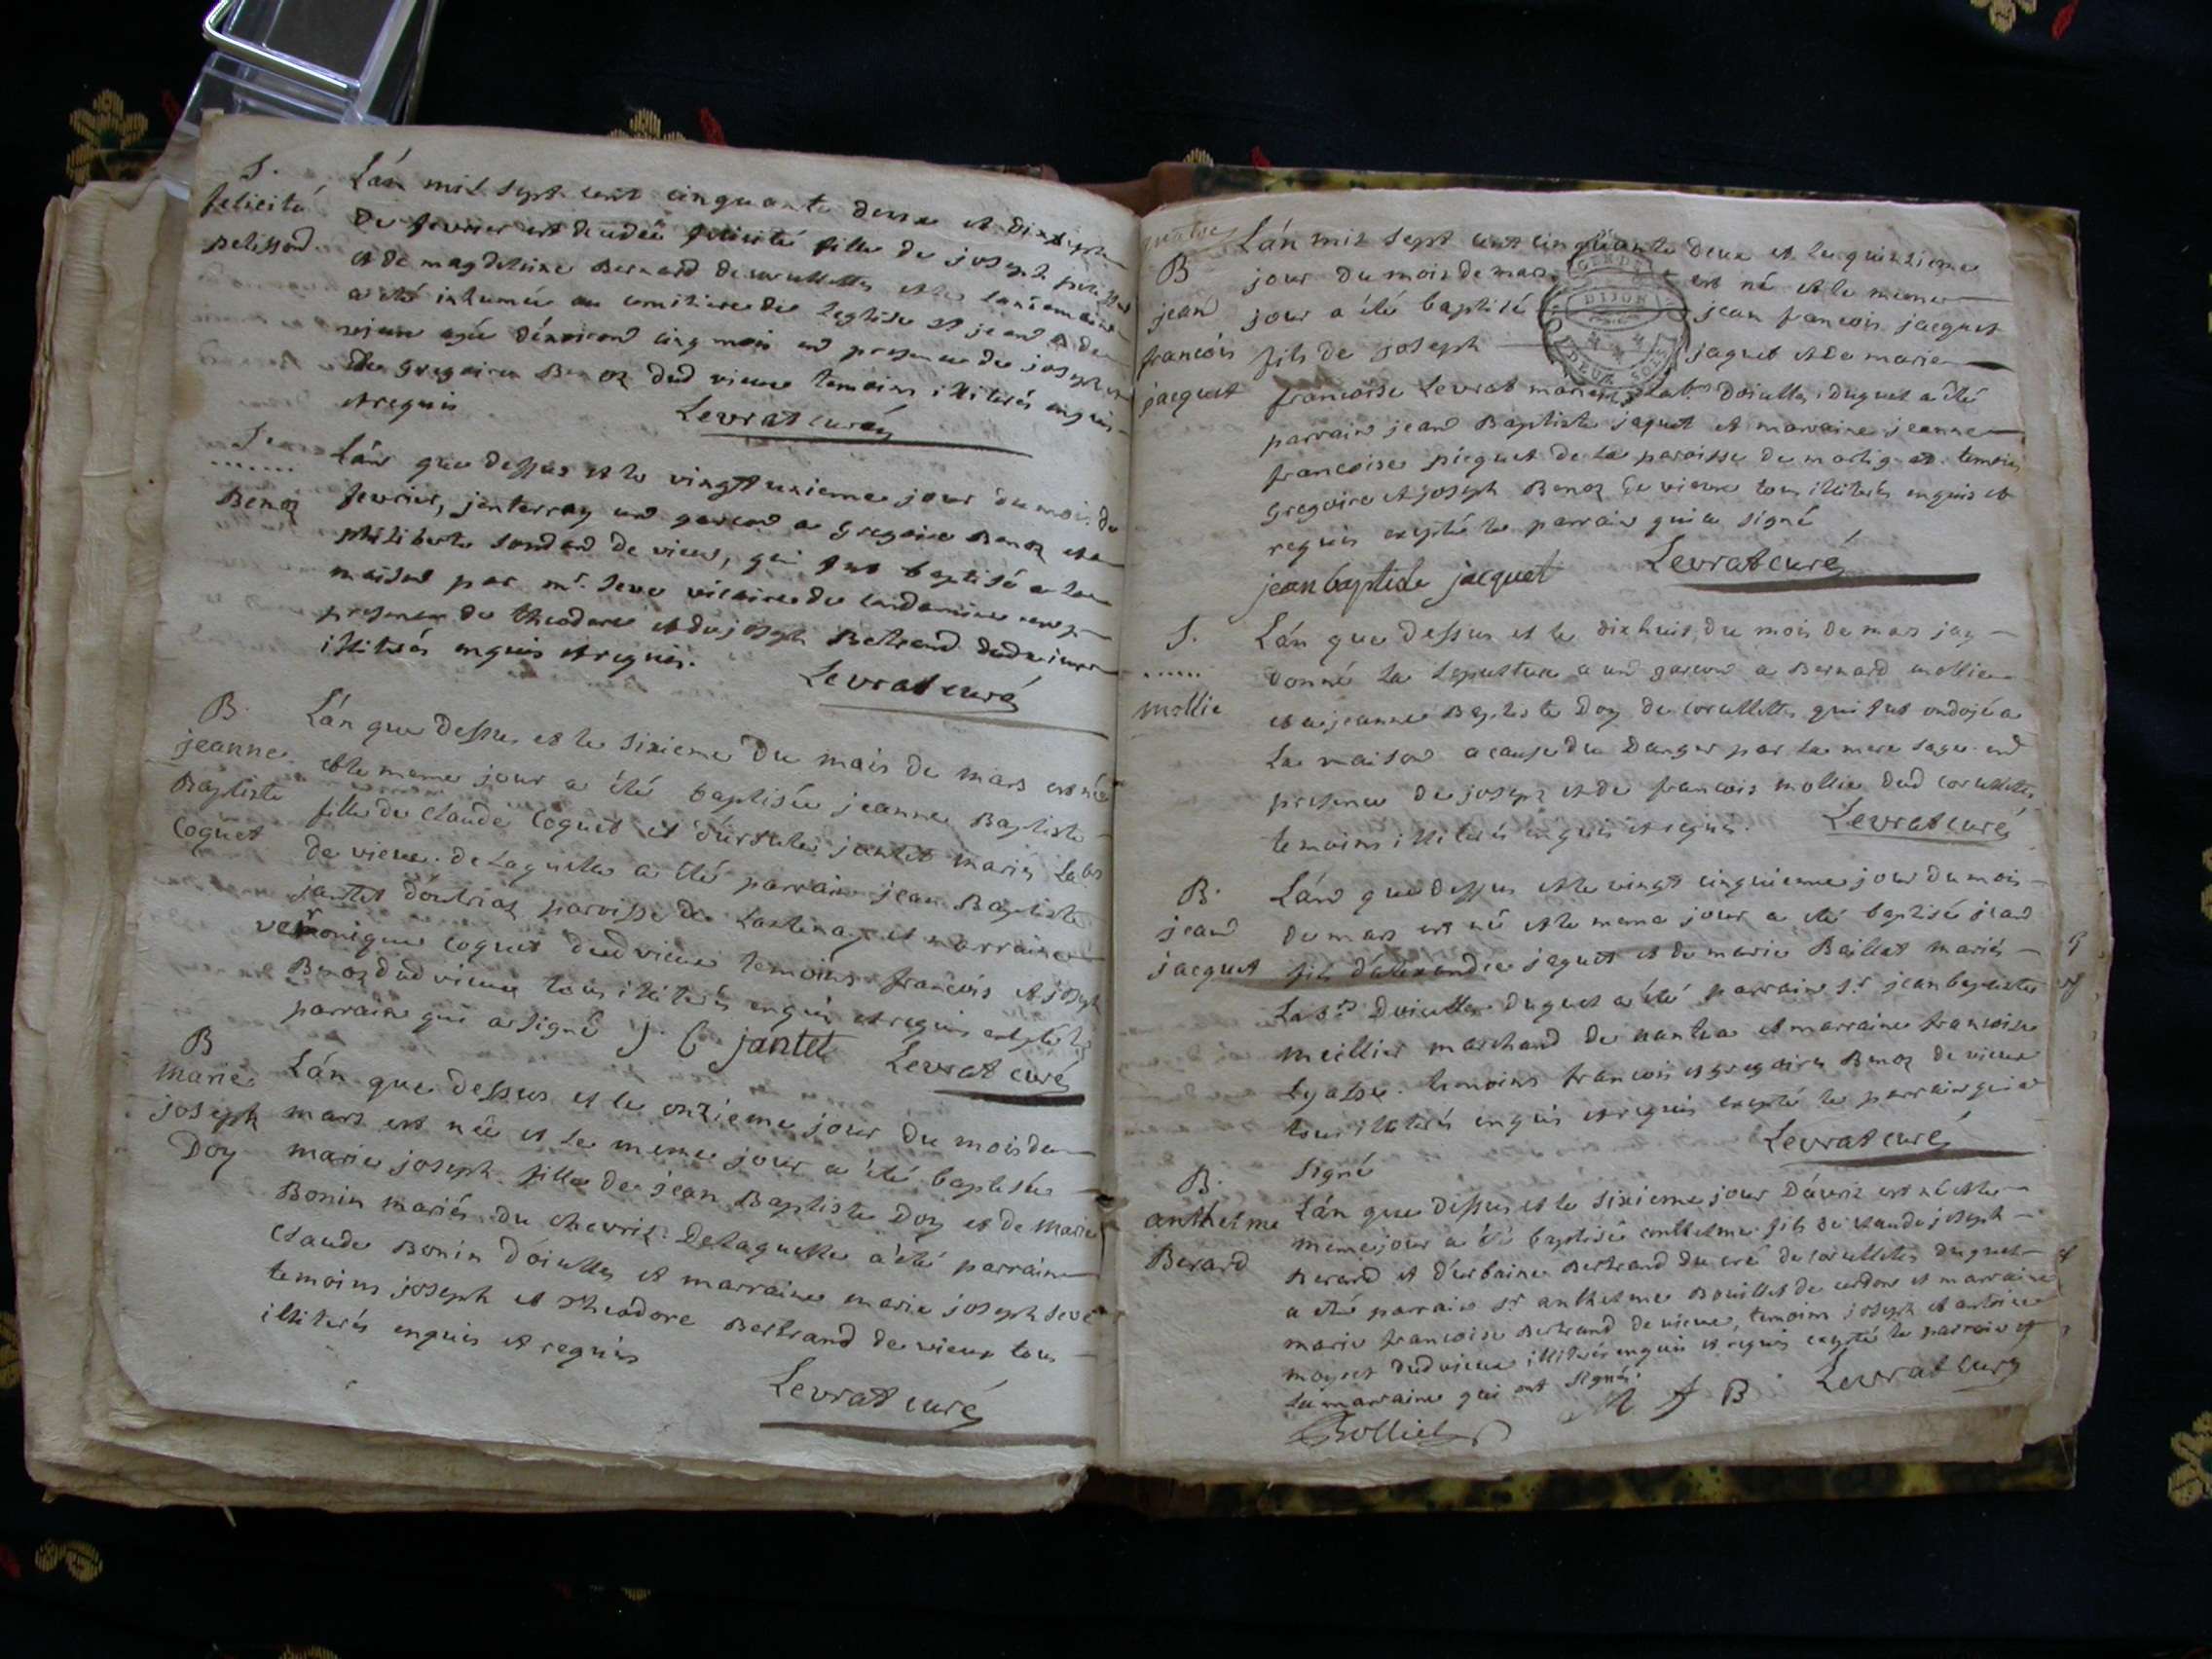 S.
felicité
pelissond
Lán mil sept cent cinquante deux et dix sept
de fevrier est decedeé felicité fille de joseph pelissod
et de magdeleine Bernard de corcellettes et le landemain
a été inhumée au cemitiere de leglise st jean de
vieux agée dénviron cinq mois en presence de joseph et
de gregoire Benoz dud vieux temoins illiterés enquis
et requis
Levrat curé
S.
......
Benoz
Lán que dessus et le vingt unieme jour du mois de
fevrier, jenterray un garcon a Gregoire Benoz et a
philiberte de vieux, qui fut baptisé a la
maison par mr. seve vicaire de
presence de theodore et de joseph Bertrand dud vieux
illiterés enquis et requis.
Levrat curé
B.
jeanne
Baptiste
Coquet
Lán que dessus et le sixieme du mois de mars est née
et le meme jour a été baptisée jeanne Baptiste
fille de Claude Coquet et dúrsule jantet mariés Labrs
de vieux. de laquelle a été parrain jean Baptiste
jantet dóutriaz paroisse de Lantenay et marraine
veronique coquet dud vieux temoins francois et joseph
Benoz dud vieux tous illiterés enquis et requis excepté le
parrain qui a signé J. B jantet Levrat curé
B
marie
joseph
Doy
Lán que dessus et le onzieme jour du mois de
mars est née et le meme jour a été baptisée
marie joseph fille de jean Baptiste Doy et de Marie
Bonin mariés du chevril. De laquelle a été parrain
Claude Bonin dóiselles et marraine marie joseph seve
temoins joseph et theodore Bertrand de vieux tous
illiterés enquis et requis
Levrat curé
quatre
B
jean
francois
jacquet
Lán mil sept cent cinquante deux et le quinzieme
jour du mois de mars est né et le meme
jour a été baptisé jean francois jacquet
fils de joseph jaquet et de marie
GENER
DIJON
DEUX SOLS
francoise Levrat mariés Labrs dóiselles. duquel a été
parrain jean Baptiste jaquet et marraine jeanne
francoise piequet de la paroisse de martig. temoins
gregoire et joseph Benoz de vieux tous illiterés enquis et
requis excepté le parrain qui a signé
jean baptiste jacquet Levrat curé
S.
......
mollie
Lán que dessus et le dix huit du mois de mars jay
donné la sepulture a un garcon a Bernard mollie
et a jeanne Baptiste Doy de corcellettes qui fut ondojé a
la maison a cause du danger par la mere sage. en
presence de joseph et de francois mollie dud corcellettes
temoins illiterés enquis et requis. Levrat curé
B.
jean
jacquet
Lán que dessus et le vingt cinquieme jour du mois
de mars est né et le meme jour a été baptisé jean
fils dálexandre jaquet et de marie Baillat mariés
Labrs Dóiselles. duquel a été parrain sr. jean baptiste
meillier marchand de nantua et marraine francoise
Lyasse. temoins francois et gregoire Benoz de vieux
tous illiterés enquis et requis excepté le parrain qui a
signé
Levrat curé
B.
anthelme
Berard
Lán que dessus et le sixieme jour Dávril est né et le
meme jour a été baptisé anthelme fils de claude joseph
Berard et dúrbaine Bertrand du cré de corcellettes duquel
a été parrain sr anthelme Bouillet de cerdon et marraine
marie francoise Bertrand de vieux, temoins joseph et antoine
moyret dud vieux illiterés enquis et requis excepté le parrain et
la marraine qui ont signé.
Bolliet M f B Levrat curé